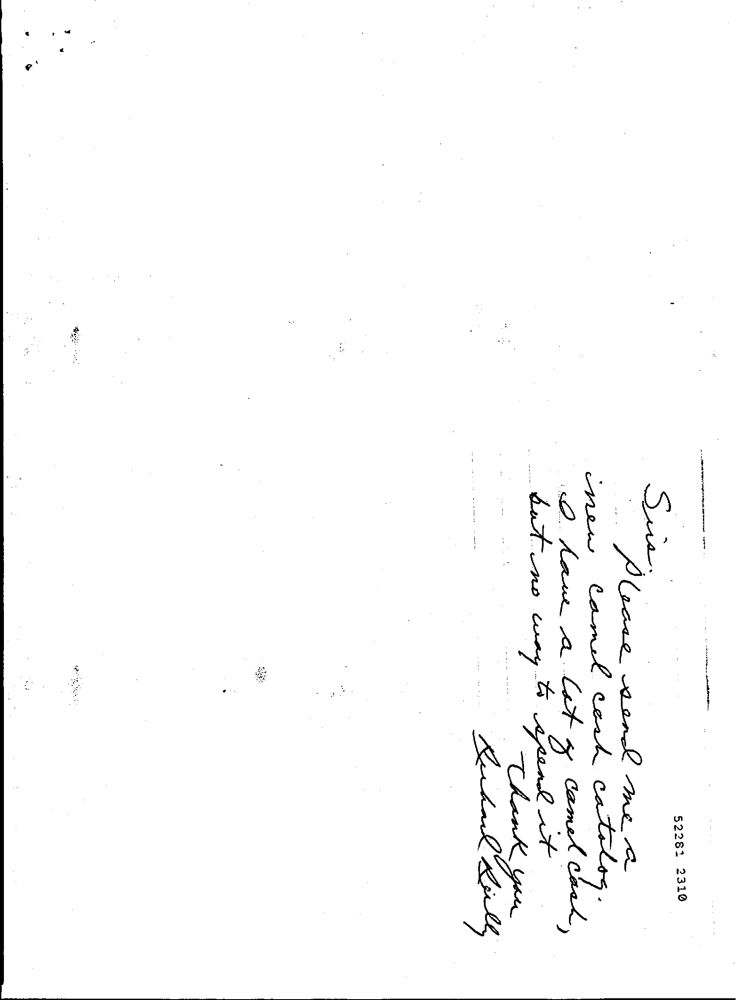 52281 2310
Sirs.
Please send me a
new camel cash catolog.
I have a lot of camel cash,
but no way to spend it
Thank you
Richard Reilly